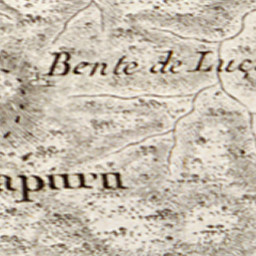 Bente de Luç
apuru